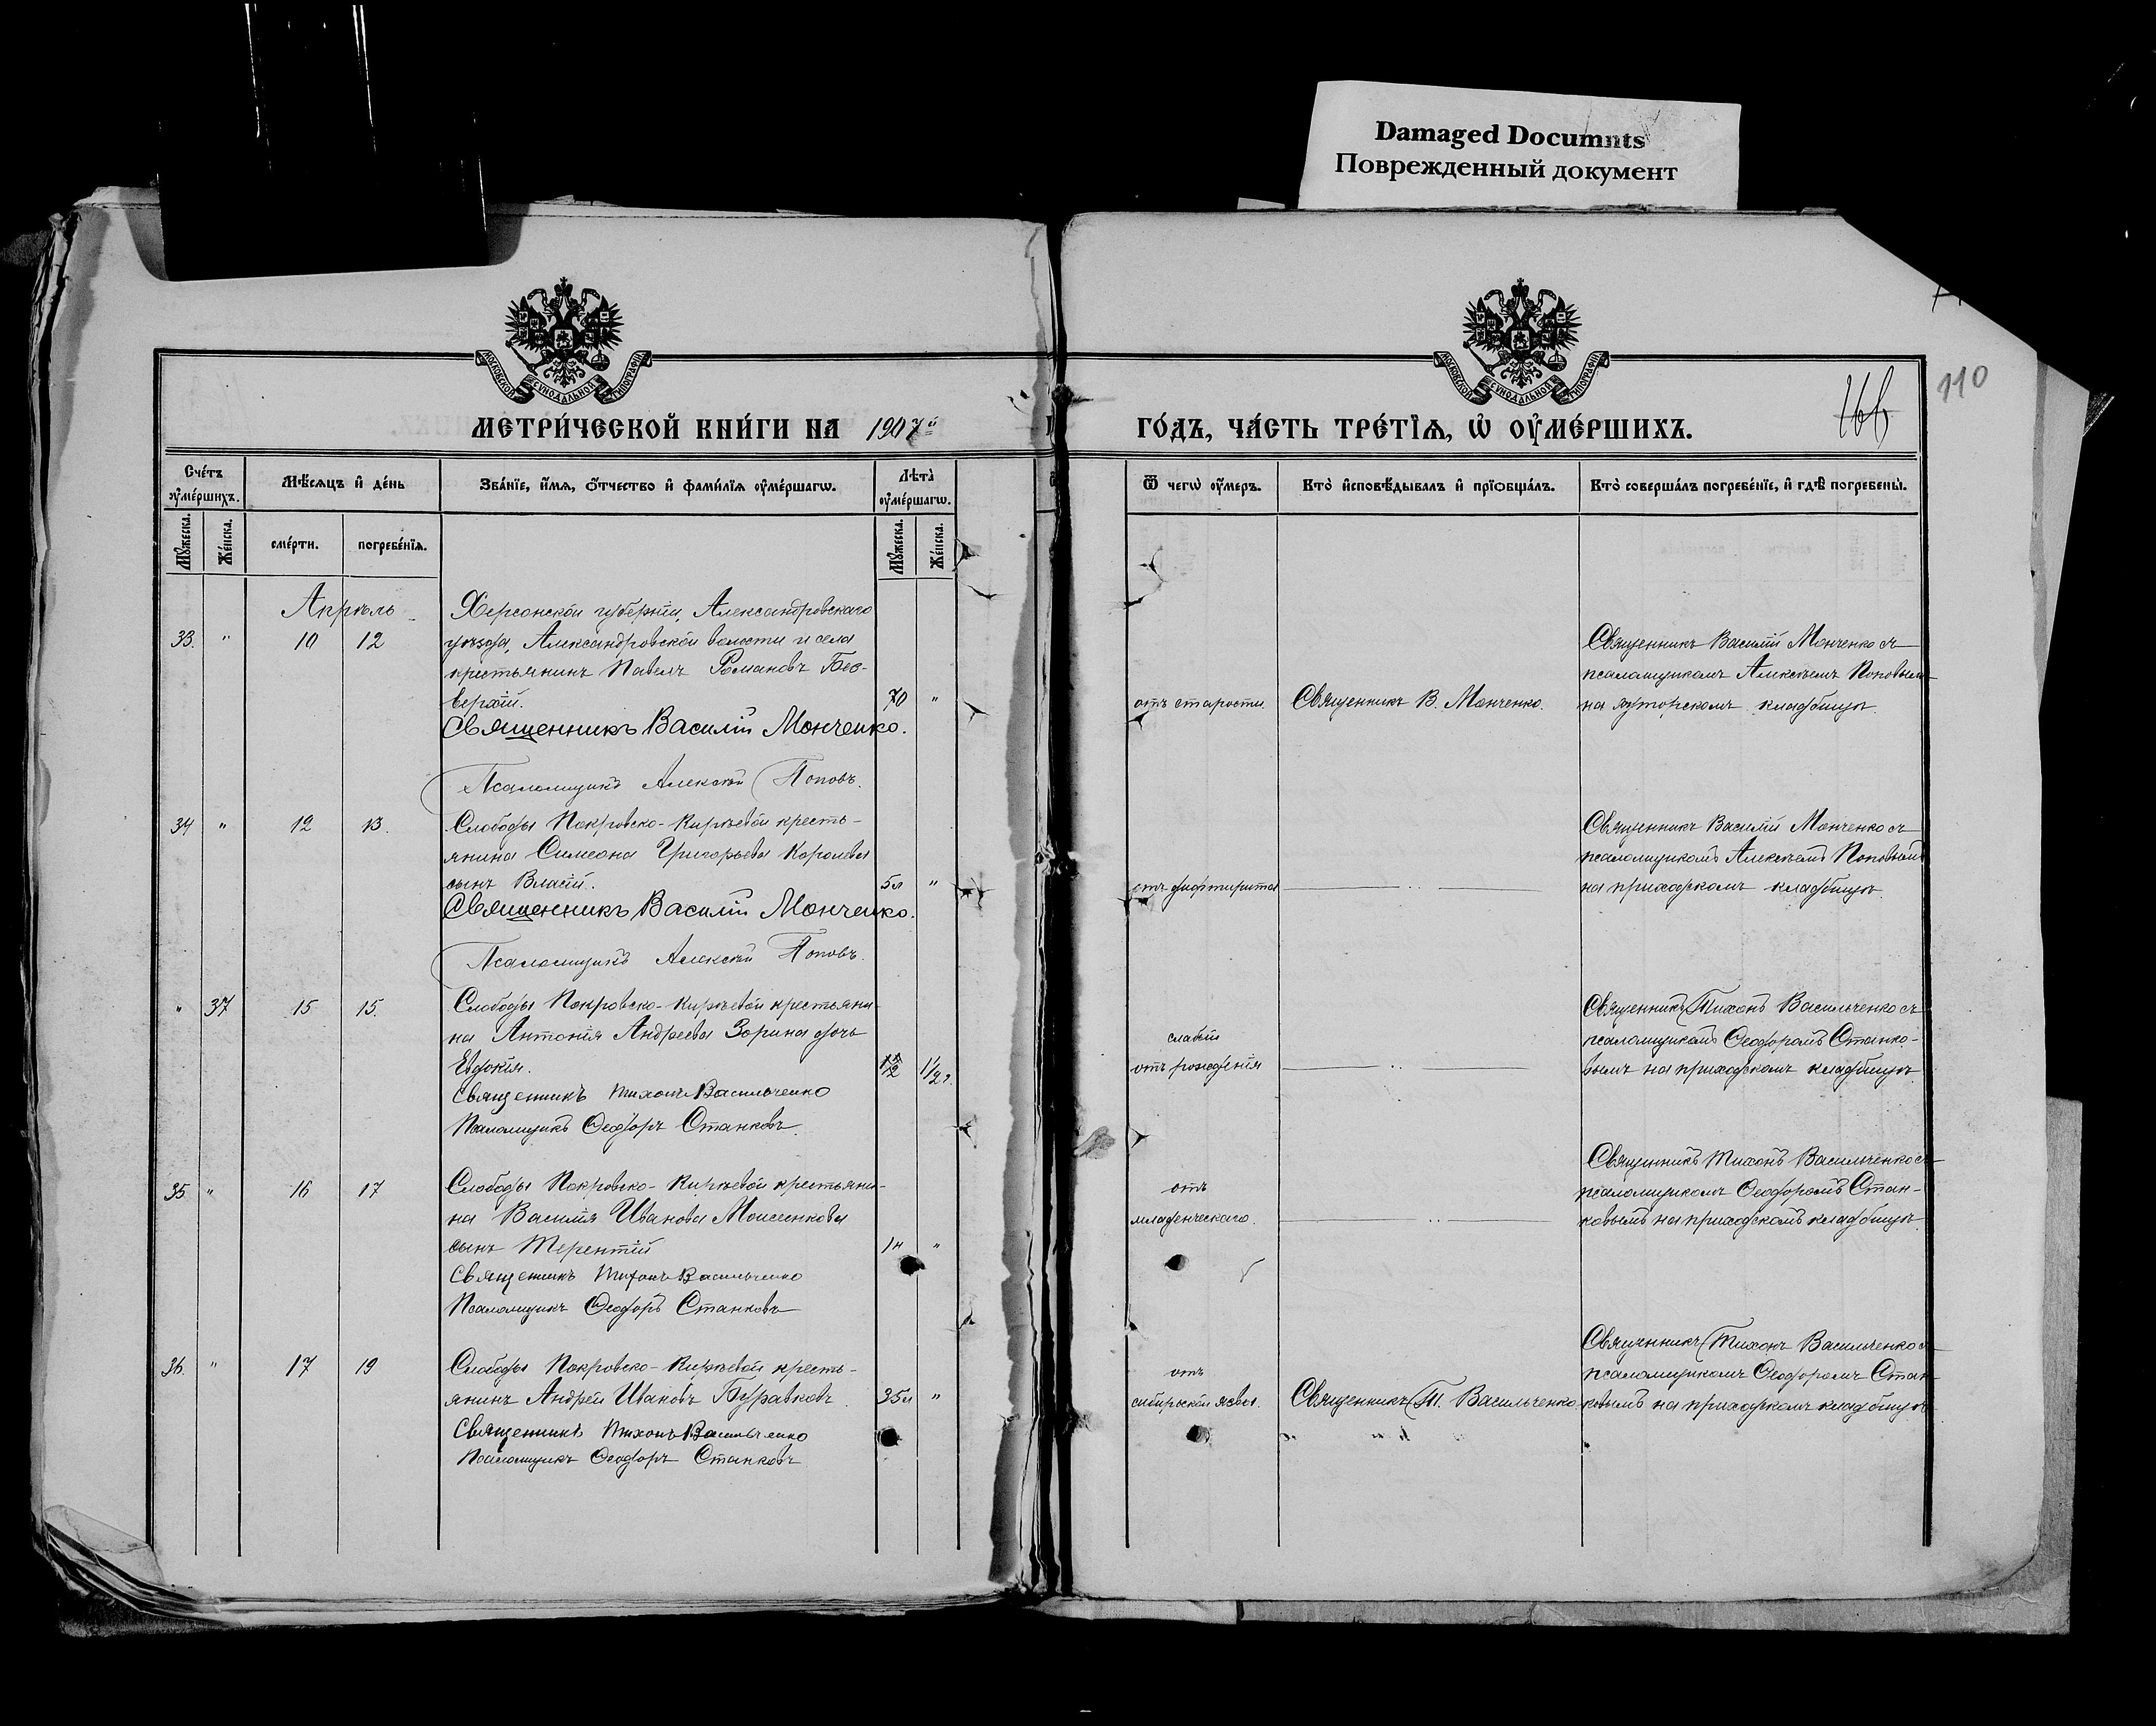 Damaged Documnts
Поврежденный документ
МОСКОВСКОЙ СѴНОДАЛЬНОЙ ТИПОГРАФІИ
МОСКОВСКОЙ СѴНОДАЛЬНОЙ ТИПОГРАФІИ
110
166
МЕТРИ́ЧЕСКОЙ КНИ́ГИ НА 1907й
ГО́ДЪ, ЧА́СТЬ ТРЕ́ТЇѦ, Ѡ҆ ОУ҆МЕ́РШИХЪ.
Сче́тъ оу҆ме́ршихъ.
Мѣ́сѧцъ и҆ де́нь
Зва́нїе, и҆́мѧ, ѻ҆́тчество и҆ фами́лїѧ оу҆ме́ршагѡ.
Лѣ́та оу҆ме́ршагѡ.
Ѿ чегѡ̀ оу҆́меръ.
Кто̀ и҆сповѣ́дывалъ и҆ прїѡбща́лъ.
Кто̀ соверша́лъ погребе́нїе, и҆ гдѣ̀ погребены̀.
Мꙋ́жеска.
Же́нска.
сме́рти.
погребе́нїѧ.
Мꙋ́жеска.
Же́нска.
Апрѣль
Херсонской губерніи, Александровскаго
33. " 10 12 уѣзда, Александровской волости и села
крестьянинъ Павелъ Романовъ Без-
верхій. 70 "
Священникъ Василій Монченко.
Псаломщикъ Алексѣй Поповъ.
отъ старости Священникъ В. Монченко.
Священникъ Василій Монченко съ
псаломщикомъ Алексѣемъ Поповымъ
на хуторскомъ кладбищѣ
34 " 12 13. Слободы Покровско-Кирѣевой кресть-
янина Симеона Григорьева Королева
сынъ Власій. 5л "
Священникъ Василій Монченко.
Псаломщикъ Алексѣй Поповъ.
отъ дифтирита
Священникъ Василій Монченко съ
псаломщикомъ Алексѣемъ Поповымъ
на приходскомъ кладбищѣ
" 37 15 15. Слободы Покровско-Кирѣевой крестьяни-
на Антонія Андреева Зорина дочь
Евдокія. 1/2 1/2 г.
Священникъ Тихонъ Васильченко
Псаломщикъ Ѳеодоръ Станковъ
слабый
отъ рожденія
Священникъ Тихонъ Васильченко съ
псаломщикомъ Ѳеодоромъ Станко-
вымъ на приходскомъ кладбищѣ
35 " 16 17 Слободы Покровско-Кирѣевой крестьяни-
на Василія Иванова Моисеенкова
сынъ Терентій 1н "
Священникъ Тихонъ Васильченко
Псаломщикъ Ѳеодоръ Станковъ
отъ
младенческаго.
Священникъ Тихонъ Васильченко съ
псаломщикомъ Ѳеодоромъ Стан-
ковымъ на приходскомъ кладбищѣ
36. " 17 19 Слободы Покровско-Кирѣевой кресть-
янинъ Андрей Ивановъ Буравковъ. 35л "
Священникъ Тихонъ Васильченко
Псаломщикъ Ѳеодоръ Станковъ
отъ
сибирской язвы. Священникъ Т. Васильченко
Священникъ Тихонъ Васильченко съ
псаломщикомъ Ѳеодоромъ Стан-
ковымъ на приходскомъ кладбищѣ